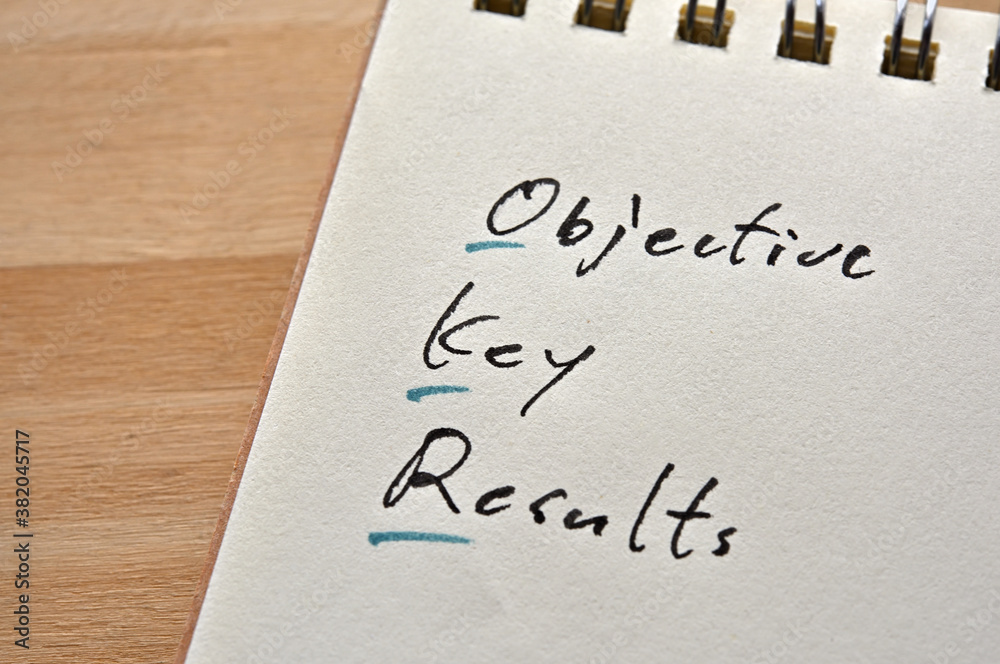 Objective
Key
Results
Adobe Stock | #382045717